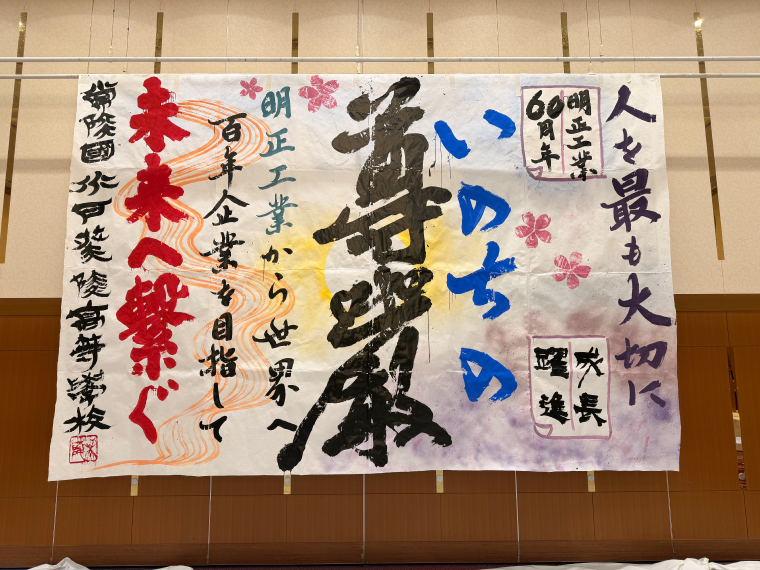 人を最も大切に
明正工業
60周年
成長
躍進
いのちの
尊厳
明正工業から世界へ
百年企業を目指して
未来へ繋ぐ
常陸國水戸葵陵高等學校